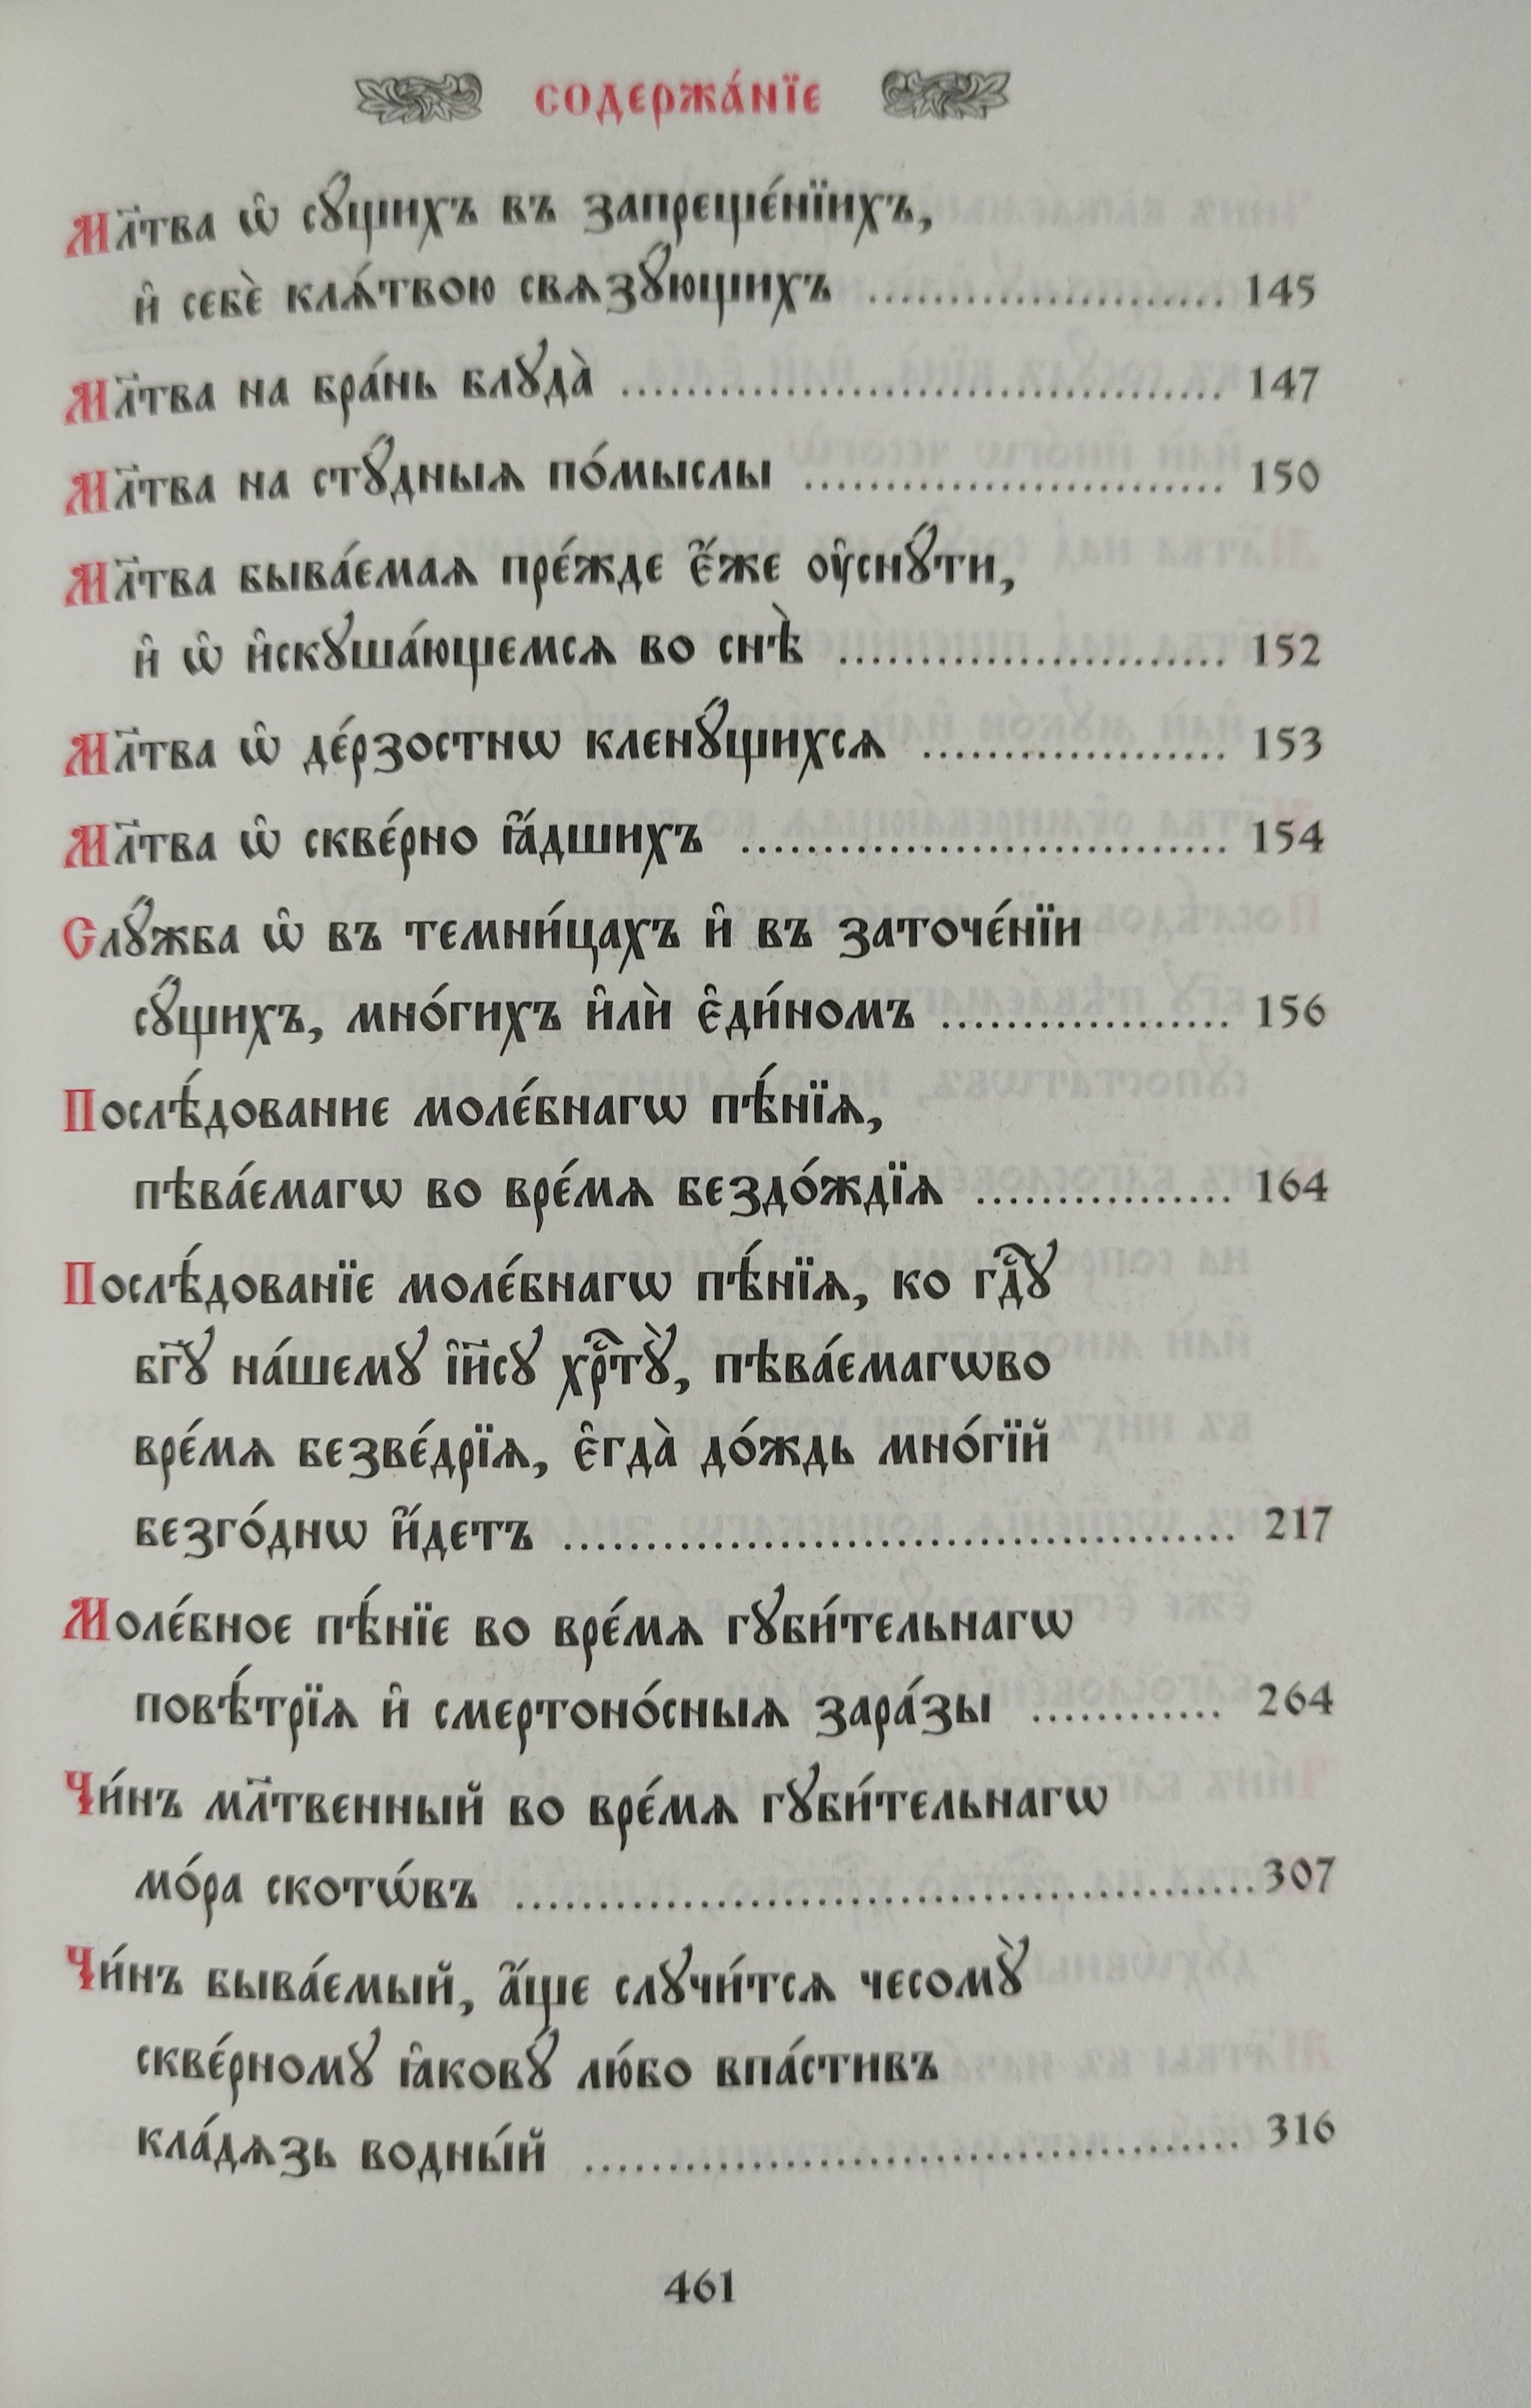 содержа́нїе
Мл҃тва ѡ҆ сꙋ́щихъ въ запреще́нїихъ,
и҆ себѐ кля́твою свѧзꙋ́ющихъ ...................... 145
Мл҃тва на бра́нь блꙋда̀ ..................................... 147
Мл҃тва на стꙋ́дныѧ по́мыслы .......................... 150
Мл҃тва быва́емаѧ пре́жде є҆́же ᲂу҆снꙋ́ти,
и҆ ѡ҆ и҆скꙋша́ющемсѧ во снѣ̀ ........................ 152
Мл҃тва ѡ҆ де́рзостнѡ кленꙋ́щихсѧ ................... 153
Мл҃тва ѡ҆ скве́рно ꙗ҆́дшихъ .............................. 154
Слꙋ́жба ѡ҆ въ темни́цахъ и҆ въ заточе́нїи
сꙋ́щихъ, мно́гихъ и҆лѝ є҆ди́номъ .................. 156
Послѣ́дование моле́бнагѡ пѣ́нїѧ,
пѣва́емагѡ во вре́мѧ бездо́ждїѧ ................ 164
Послѣ́дованїе моле́бнагѡ пѣ́нїѧ, ко гдⷭ҇ꙋ
бг҃ꙋ на́шемꙋ і҆и҃сꙋ хрⷭ҇тꙋ̀, пѣва́емагѡво
вре́мѧ безве́дрїѧ, є҆гда̀ до́ждь мно́гїй
безго́днѡ и҆́детъ ......................................... 217
Моле́бное пѣ́нїе во вре́мѧ гꙋби́тельнагѡ
повѣ́трїѧ и҆ смертоно́сныѧ зара́зы ............ 264
Чи́нъ мл҃твенный во вре́мѧ гꙋби́тельнагѡ
мо́ра скотѡ́въ .............................................307
Чи́нъ быва́емый, а҆́ще слꙋчи́тсѧ чесомꙋ̀
скве́рномꙋ ꙗ҆ковꙋ́ лю́бо впа́стивъ
кла́дѧзь водны́й ........................................ 316
461